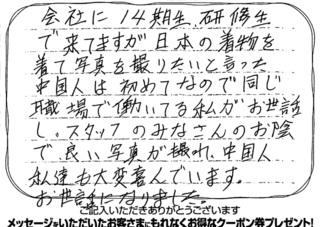 会社に14期生、研修生
で来てますが日本の着物を
着て写真を撮りたいと言った
中国人は初めてなので同じ
職場で働いてる私がお世話
し、スタッフのみなさんのお陰
で良い写真が撮れ、中国人
私達も大変喜んでいます。
お世話になりました。
ご記入いただきありがとうございます
メッセージをいただいたお客さまにもれなくお得なクーポン券プレゼント!